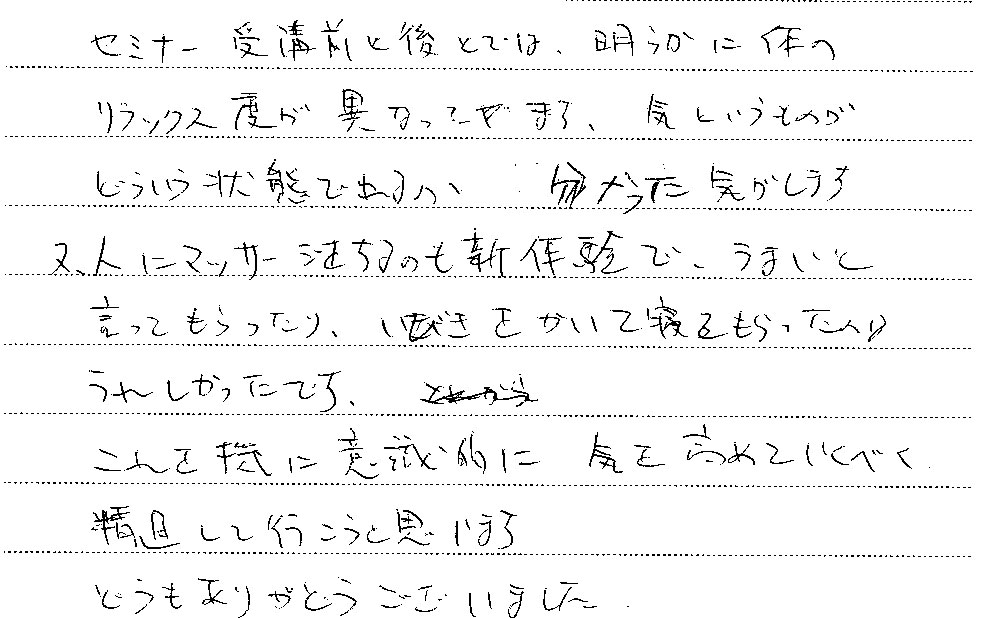 セミナー受講前と後とでは、明らかに体の
リラックス度が異なってきます、気というものが
どういう状態であるのか、分かった気がします
又、人にマッサージをするのも新体験で、うまいと
言ってもらったり、いびきをかいて寝てもらったり
うれしかったです、
これを機に意識的に気を高めていくべく
精進して行こうと思います
どうもありがとうございました.